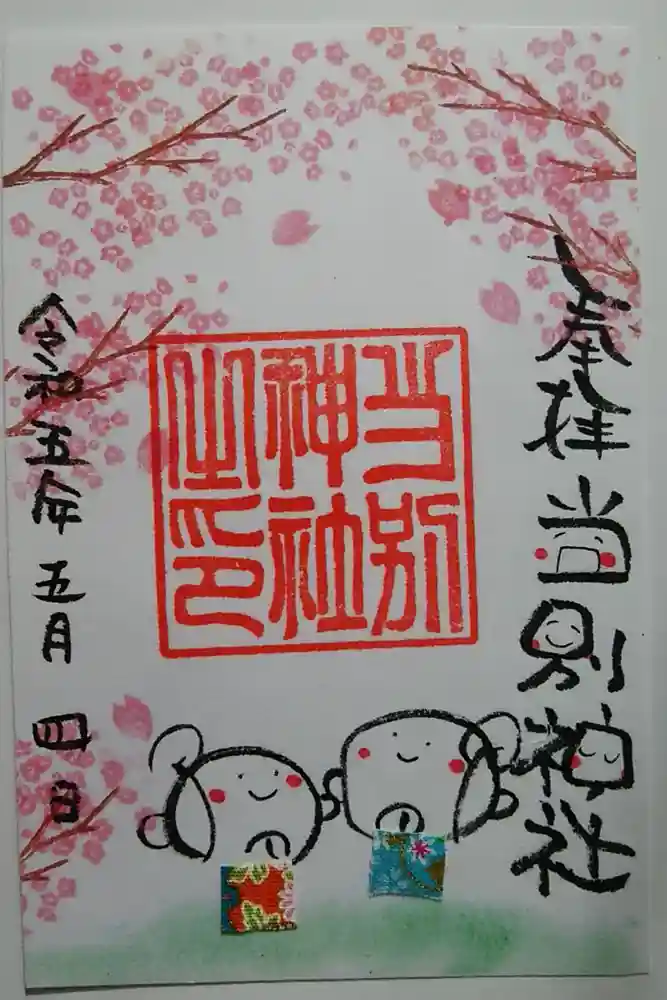 奉拝
当別神社
当別
神社
之印
令和五年五月四日